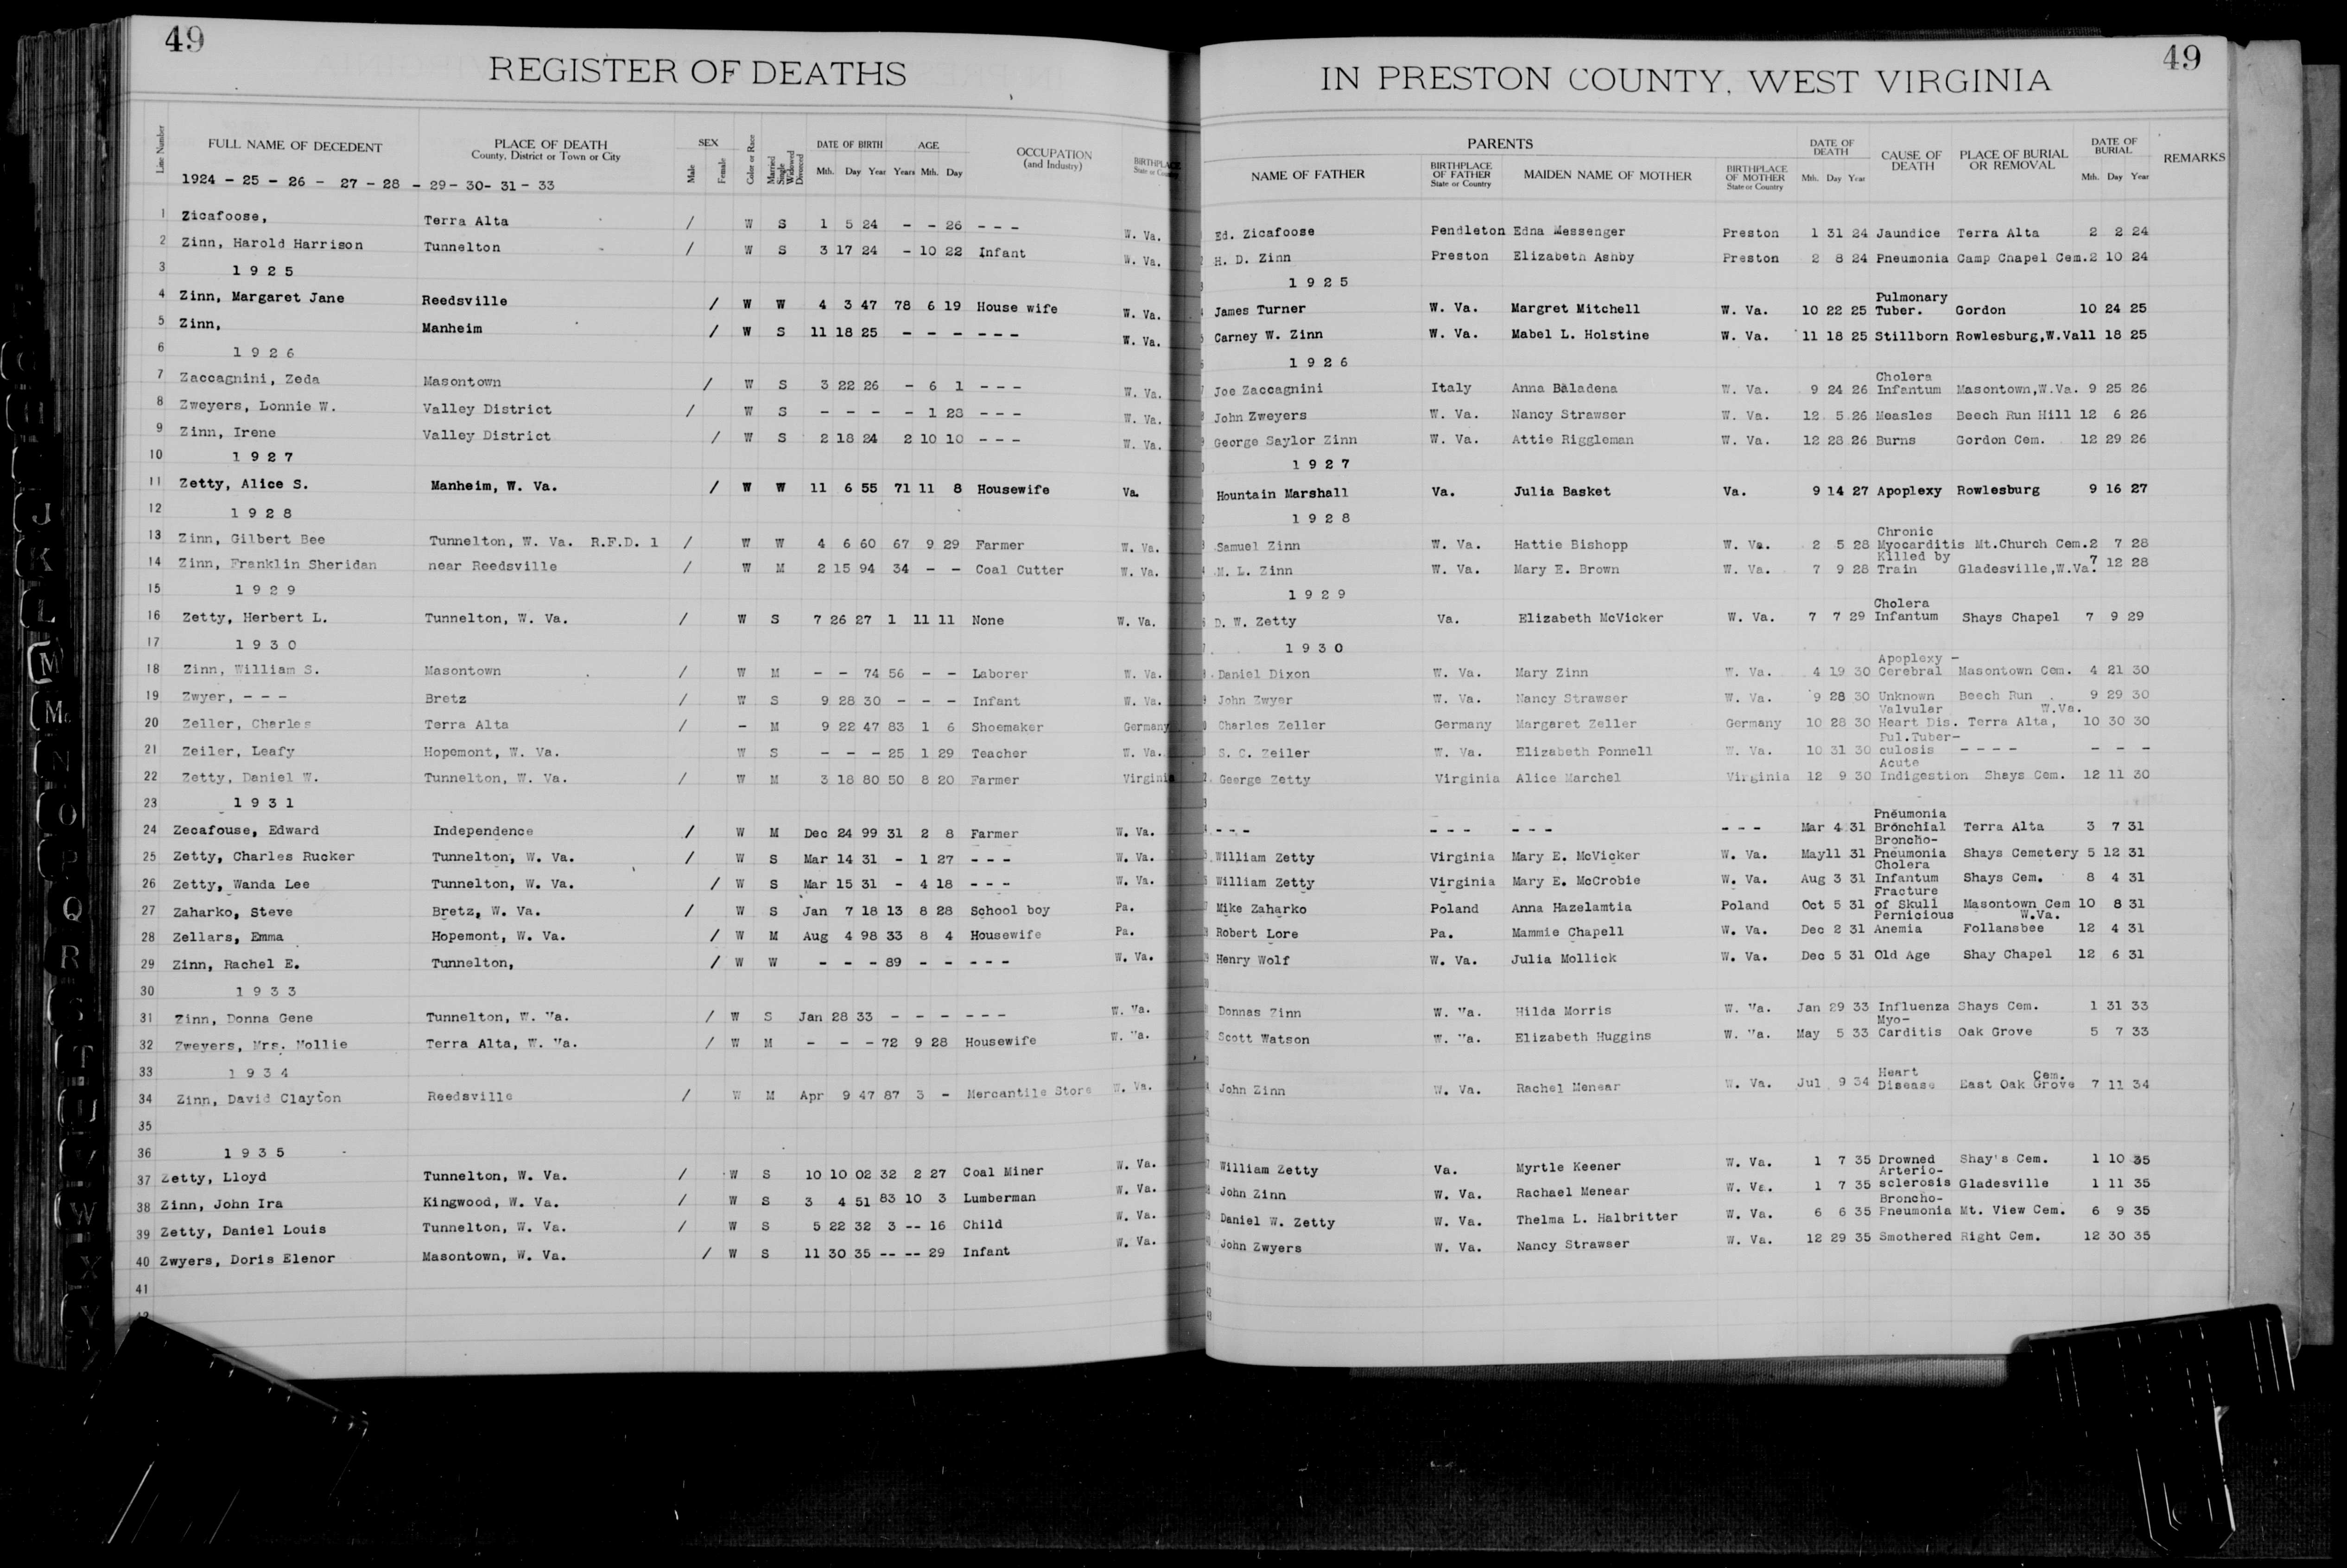 49
REGISTER OF DEATHS
Line Number FULL NAME OF DECEDENT PLACE OF DEATH County, District or Town or City SEX Male Female Color or Race Married Single Widowed Divorced DATE OF BIRTH Mth. Day Year AGE Years Mth. Day OCCUPATION (and Industry) BIRTHPLACE
1924 - 25 - 26 - 27 - 28 - 29 - 30 - 31 - 33
1 Zicafoose, Terra Alta / W S 1 5 24 - - 26 - - - W. Va.
2 Zinn, Harold Harrison Tunnelton / W S 3 17 24 - 10 22 Infant W. Va.
3 1925
4 Zinn, Margaret Jane Reedsville / W W 4 3 47 78 6 19 House wife W. Va.
5 Zinn, Manheim / W S 11 18 25 - - - - - - W. Va.
6 1926
7 Zaccagnini, Zeda Masontown / W S 3 22 26 - 6 1 - - - W. Va.
8 Zweyers, Lonnie W. Valley District / W S - - - - 1 28 - - - W. Va.
9 Zinn, Irene Valley District / W S 2 18 24 2 10 10 - - - W. Va.
10 1927
11 Zetty, Alice S. Manheim, W. Va. / W W 11 6 55 71 11 8 Housewife Va.
12 1928
13 Zinn, Gilbert Bee Tunnelton, W. Va. R.F.D. 1 / W W 4 6 60 67 9 29 Farmer W. Va.
14 Zinn, Franklin Sheridan near Reedsville / W M 2 15 94 34 - - Coal Cutter W. Va.
15 1929
16 Zetty, Herbert L. Tunnelton, W. Va. / W S 7 26 27 1 11 11 None W. Va.
17 1930
18 Zinn, William S. Masontown / W M - - 74 56 - - Laborer W. Va.
19 Zwyer, - - - Bretz / W S 9 28 30 - - - Infant W. Va.
20 Zeller, Charles Terra Alta / - M 9 22 47 83 1 6 Shoemaker Germany
21 Zeiler, Leafy Hopemont, W. Va. W S - - - 25 1 29 Teacher W. Va.
22 Zetty, Daniel W. Tunnelton, W. Va. / W M 3 18 80 50 8 20 Farmer Virginia
23 1931
24 Zecafouse, Edward Independence / W M Dec 24 99 31 2 8 Farmer W. Va.
25 Zetty, Charles Rucker Tunnelton, W. Va. / W S Mar 14 31 - 1 27 - - - W. Va.
26 Zetty, Wanda Lee Tunnelton, W. Va. / W S Mar 15 31 - 4 18 - - - W. Va.
27 Zaharko, Steve Bretz, W. Va. / W S Jan 7 18 13 8 28 School boy Pa.
28 Zellars, Emma Hopemont, W. Va. / W M Aug 4 98 33 8 4 Housewife Pa.
29 Zinn, Rachel E. Tunnelton, / W W - - - 89 - - - - - W. Va.
30 1933
31 Zinn, Donna Gene Tunnelton, W. Va. / W S Jan 28 33 - - - - - - W. Va.
32 Zweyers, Mrs. Mollie Terra Alta, W. Va. / W M - - - 72 9 28 Housewife W. Va.
33 1934
34 Zinn, David Clayton Reedsville / W M Apr 9 47 87 3 - Mercantile Store W. Va.
35
36 1935
37 Zetty, Lloyd Tunnelton, W. Va. / W S 10 10 02 32 2 27 Coal Miner W. Va.
38 Zinn, John Ira Kingwood, W. Va. / W S 3 4 51 83 10 3 Lumberman W. Va.
39 Zetty, Daniel Louis Tunnelton, W. Va. / W S 5 22 32 3 -- 16 Child W. Va.
40 Zwyers, Doris Elenor Masontown, W. Va. / W S 11 30 35 -- -- 29 Infant W. Va.
41
49
IN PRESTON COUNTY, WEST VIRGINIA
PARENTS NAME OF FATHER BIRTHPLACE OF FATHER State or Country MAIDEN NAME OF MOTHER BIRTHPLACE OF MOTHER State or Country DATE OF DEATH Mth. Day Year CAUSE OF DEATH PLACE OF BURIAL OR REMOVAL DATE OF BURIAL Mth. Day Year REMARKS
Ed. Zicafoose Pendleton Edna Messenger Preston 1 31 24 Jaundice Terra Alta 2 2 24
H. D. Zinn Preston Elizabeth Ashby Preston 2 8 24 Pneumonia Camp Chapel Cem. 2 10 24
1925
James Turner W. Va. Margret Mitchell W. Va. 10 22 25 Pulmonary Tuber. Gordon 10 24 25
Carney W. Zinn W. Va. Mabel L. Holstine W. Va. 11 18 25 Stillborn Rowlesburg,W.Va11 18 25
1926
Joe Zaccagnini Italy Anna Baladena W. Va. 9 24 26 Cholera Infantum Masontown,W.Va. 9 25 26
John Zweyers W. Va. Nancy Strawser W. Va. 12 5 26 Measles Beech Run Hill 12 6 26
George Saylor Zinn W. Va. Attie Riggleman W. Va. 12 28 26 Burns Gordon Cem. 12 29 26
1927
Hountain Marshall Va. Julia Basket Va. 9 14 27 Apoplexy Rowlesburg 9 16 27
1928
Samuel Zinn W. Va. Hattie Bishopp W. Va. 2 5 28 Chronic Myocarditis Mt.Church Cem. 2 7 28
M. L. Zinn W. Va. Mary E. Brown W. Va. 7 9 28 Killed by Train Gladesville,W.Va. 7 12 28
1929
D. W. Zetty Va. Elizabeth McVicker W. Va. 7 7 29 Cholera Infantum Shays Chapel 7 9 29
1930
Daniel Dixon W. Va. Mary Zinn W. Va. 4 19 30 Apoplexy - Cerebral Masontown Cem. 4 21 30
John Zwyer W. Va. Nancy Strawser W. Va. 9 28 30 Unknown Beech Run 9 29 30
Charles Zeller Germany Margaret Zeller Germany 10 28 30 Valvular Heart Dis. Terra Alta, W.Va. 10 30 30
S. C. Zeiler W. Va. Elizabeth Ponnell W. Va. 10 31 30 Pul.Tuber- culosis - - - - - - -
George Zetty Virginia Alice Marchel Virginia 12 9 30 Acute Indigestion Shays Cem. 12 11 30
- - - - - - - - - - - - Mar 4 31 Pneumonia Bronchial Terra Alta 3 7 31
William Zetty Virginia Mary E. McVicker W. Va. May11 31 Broncho- Pneumonia Shays Cemetery 5 12 31
William Zetty Virginia Mary E. McCrobie W. Va. Aug 3 31 Cholera Infantum Shays Cem. 8 4 31
Mike Zaharko Poland Anna Hazelamtia Poland Oct 5 31 Fracture of Skull Masontown Cem W.Va. 10 8 31
Robert Lore Pa. Mammie Chapell W. Va. Dec 2 31 Pernicious Anemia Follansbee 12 4 31
Henry Wolf W. Va. Julia Mollick W. Va. Dec 5 31 Old Age Shay Chapel 12 6 31
Donnas Zinn W. Va. Hilda Morris W. Va. Jan 29 33 Influenza Shays Cem. 1 31 33
Scott Watson W. Va. Elizabeth Huggins W. Va. May 5 33 Myo- Carditis Oak Grove 5 7 33
John Zinn W. Va. Rachel Menear W. Va. Jul 9 34 Heart Disease East Oak Grove Cem. 7 11 34
William Zetty Va. Myrtle Keener W. Va. 1 7 35 Drowned Shay's Cem. 1 10 35
John Zinn W. Va. Rachael Menear W. Va. 1 7 35 Arterio- sclerosis Gladesville 1 11 35
Daniel W. Zetty W. Va. Thelma L. Halbritter W. Va. 6 6 35 Broncho- Pneumonia Mt. View Cem. 6 9 35
John Zwyers W. Va. Nancy Strawser W. Va. 12 29 35 Smothered Right Cem. 12 30 35
J
K
L
M
Mc
N
O
P
Q
R
S
T
U
V
W
X
Y